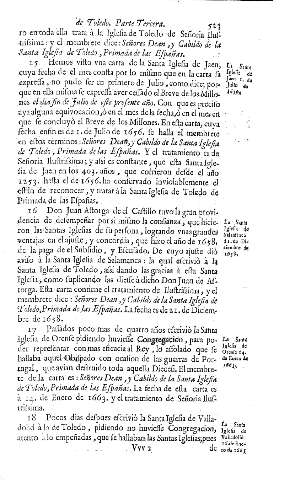 de Toledo. Parte Tercera. 523
ro en toda ella trata à la Iglesia de Toledo de Señoria Ilus-
trissima: y el membrete dice: Señores Dean, y Cabildo de la
Santa Iglesia de Toledo, Primada de las Españas.
15 Hemos visto una carta de la Santa Iglesia de Jaen,
cuya fecha de el mes consta por lo mismo que en la carta se
expressa, no pudo ser en primero de Julio, como dice, por-
que en ella misma se expressa aver cessado el Breve de los Millo-
nes el dia fin de Julio de este presente año. Con que es preciso
aya alguna equivocacion, ò en el mes de la fecha, ò en el mes en
que se concluyò el Breve de Millones. En esta carta, cuya
fecha es fin es en 1. de Julio de 1656. se halla el membrete
en estos terminos: Señores Dean, y Cabildo de la Santa Iglesia
de Toledo, Primada de las Españas. Y el tratamiento es de
Señoria Ilustrissima; y assi es constante, que esta Santa Iglesia
de Jaen en los 403. años, que corrieron desde el año
1253. hasta el de 1656. ha conservado inviolablemente el
estilo de reconocer, y tratar à la Santa Iglesia de Toledo de
Primada de las Españas.
16 Don Juan Astorga de el Castillo tuvo la gran provi-
dencia de desempeñar por sì mismo la confianza, que hicie-
ron las Santas Iglesias de su persona, logrando unas grandes
ventajas en el ajuste, y concordia, que hizo el año de 1658.
de la paga de el Subsidio, y Escusado. De cuyo ajuste diò
aviso à la Santa Iglesia de Salamanca: la qual escriviò à la
Santa Iglesia de Toledo, assi dando las gracias à esta Santa
Iglesia, como suplicando las diesse à dicho Don Juan de As-
torga. Esta carta contiene el tratamiento de Ilustrissima, y el
membrete dice: Señores Dean, y Cabildo de la Santa Iglesia de
Toledo, Primada de las Españas. La fecha es de 21. de Diciem-
bre de 1658.
17 Passados poco mas de quatro años escriviò la Santa
Iglesia de Orense pidiendo huviesse Congregacion, para po-
der representar con mas eficacia al Rey, lo assolado que se
hallaba aquel Obispado con ocasion de las guerras de Por-
tugal, que avian destruido toda aquella Diocesi. El membre-
te de la carta es: Señores Dean, y Cabildo de la Santa Iglesia
de Toledo, Primada de las Españas. La fecha de esta carta es
à 14. de Enero de 1663. y el tratamiento de Señoria Ilus-
trissima.
18 Pocos dias despues escriviò la Santa Iglesia de Valla-
dolid à la de Toledo, pidiendo no huviesse Congregacion,
atento à lo empeñadas, que se hallaban las Santas Iglesias, pues
Vvv 2 de
La Santa
Iglesia de
Jaen 1. de
Julio de
1656.
La Santa
Iglesia de
Salamanca
21. de Di-
ciembre de
1658.
La Santa
Iglesia de
Orense 14.
de Enero de
1663.
La Santa
Iglesia de
Valladolid
de Ene-
ro de 1663